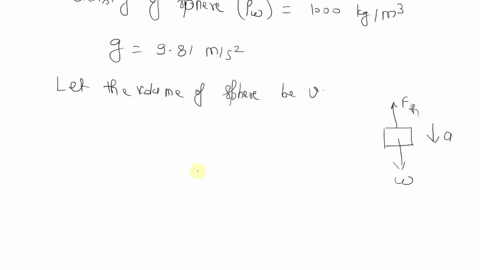 of sphere (ρω) = 1000 kg/m³
g = 9.81 m/s²
Let the volume of sphere be v.
F
↓ a
ω